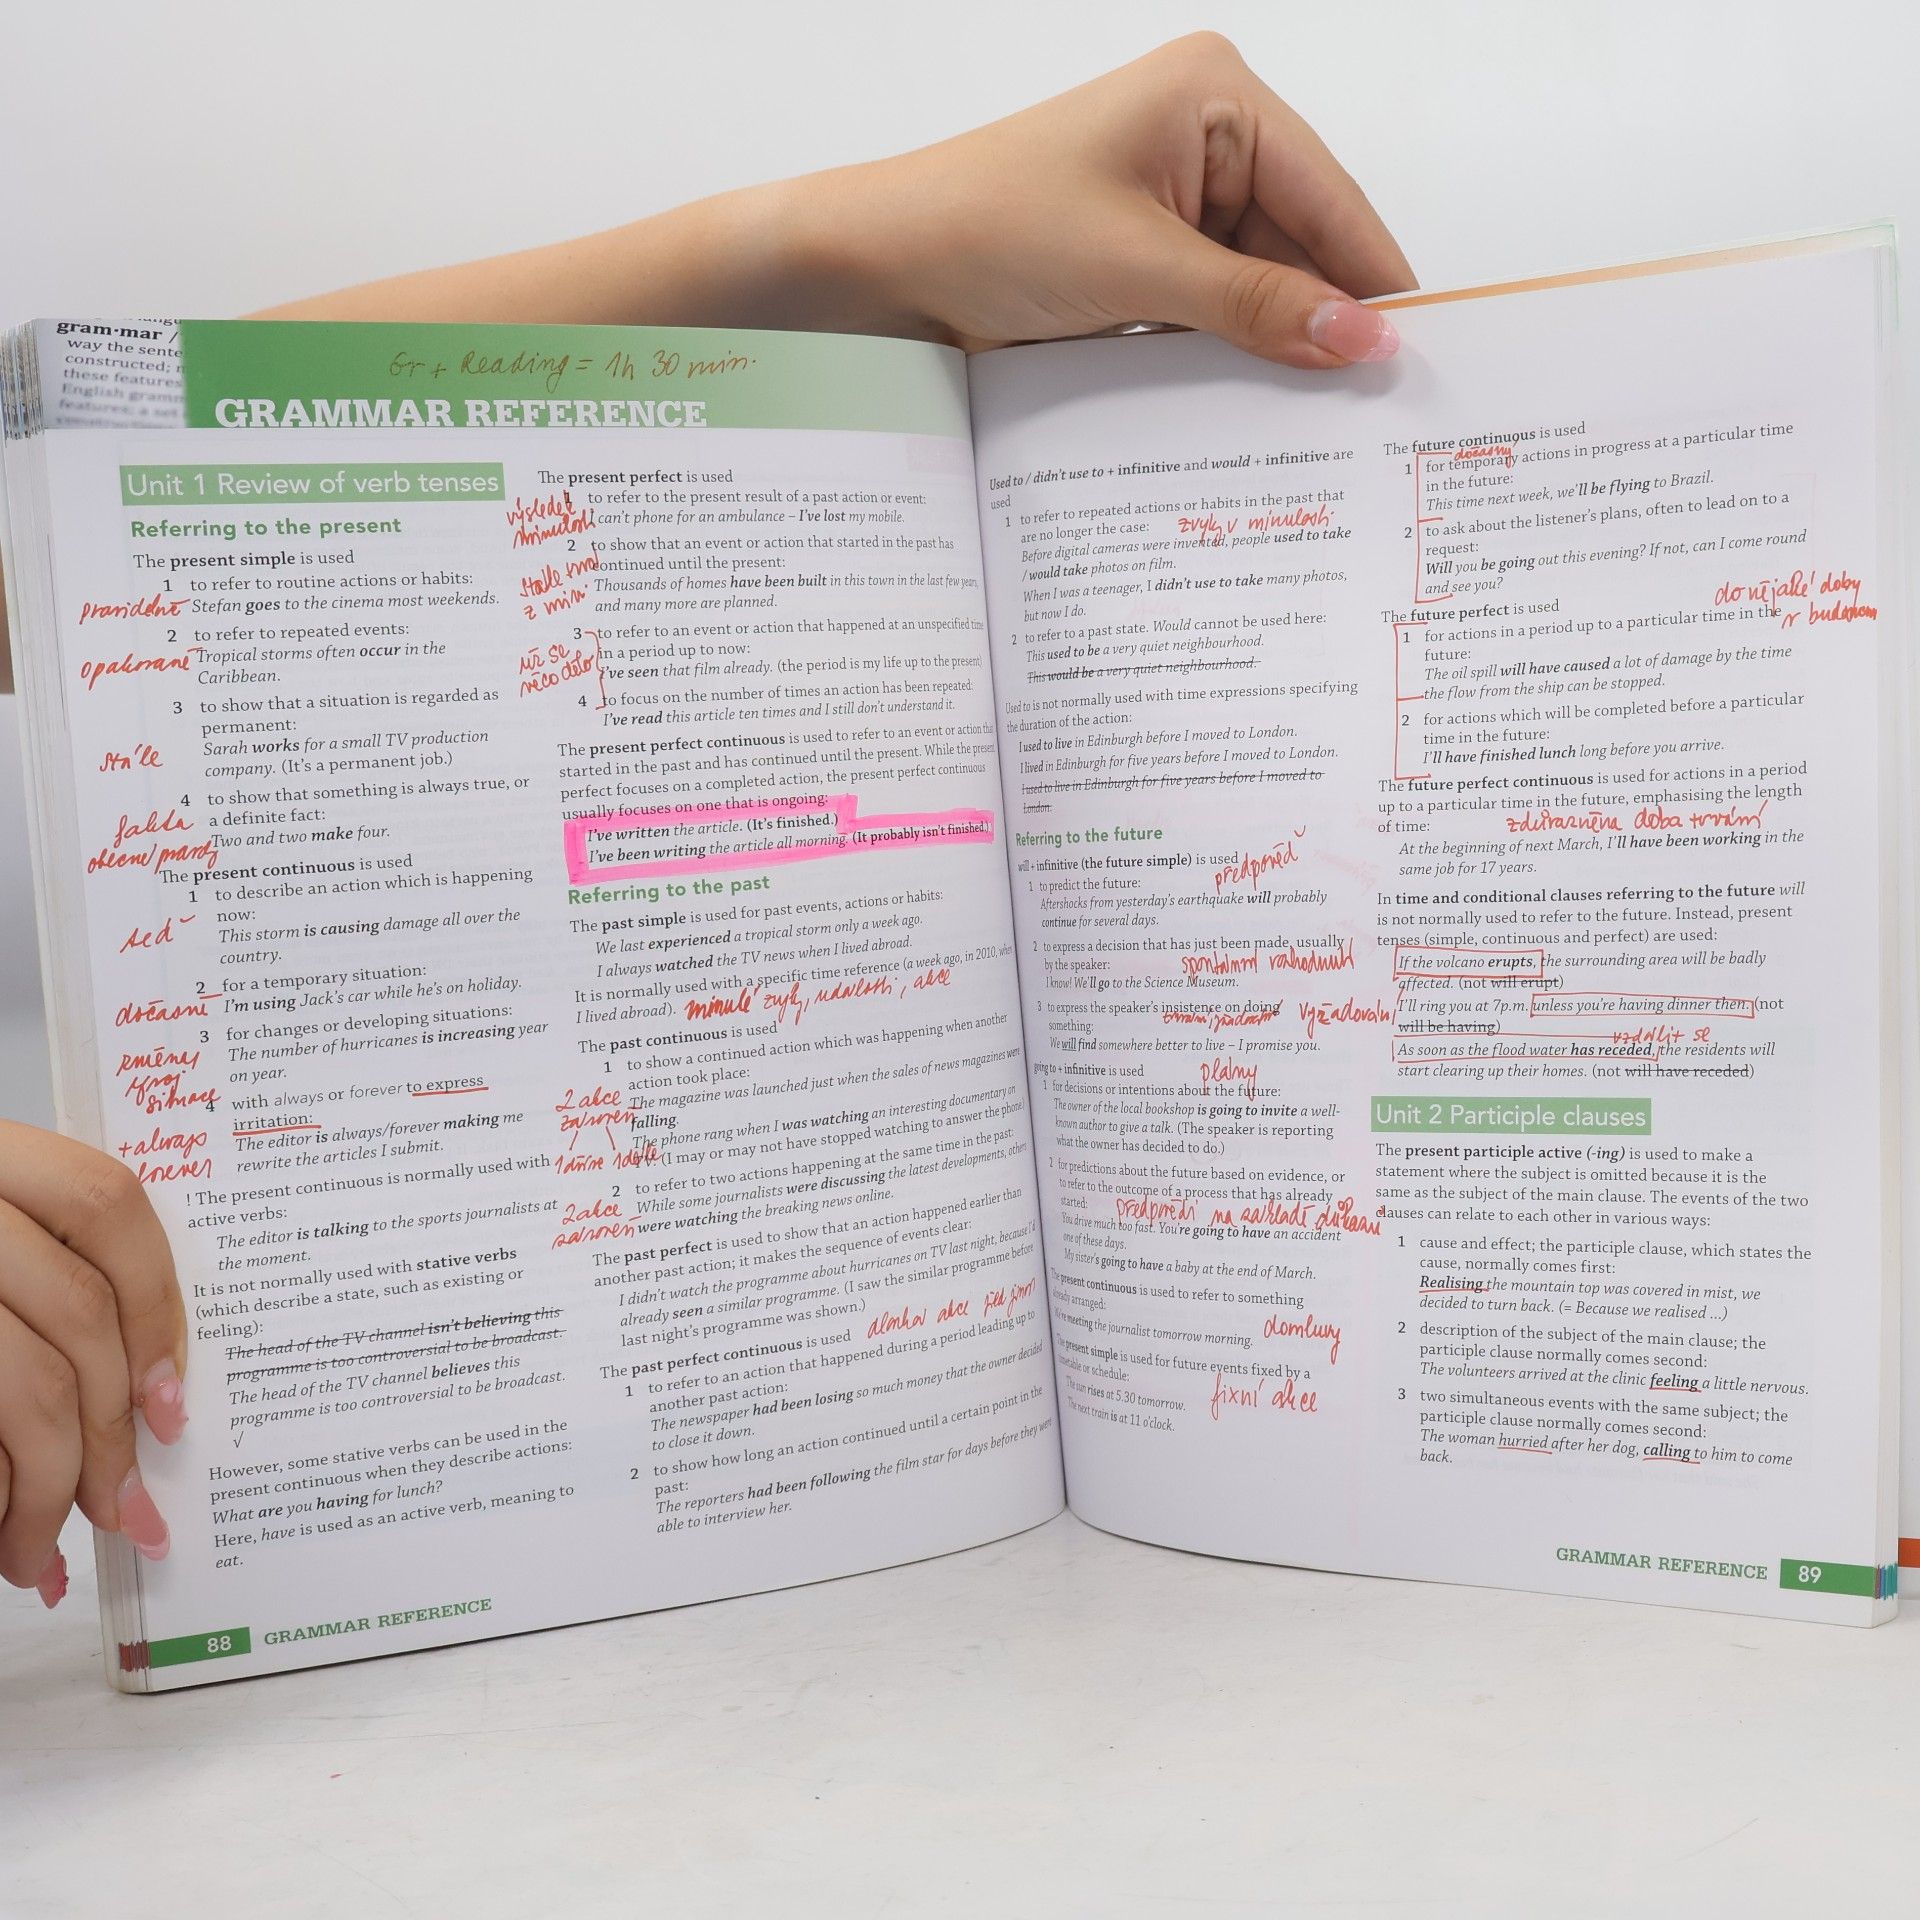 gram·mar /
way the sente
constructed;
these features
English gramm
Gr + Reading = 1h 30 min.
GRAMMAR REFERENCE
Unit 1 Review of verb tenses
Referring to the present
The present simple is used
1 to refer to routine actions or habits:
Pravidelně Stefan goes to the cinema most weekends.
2 to refer to repeated events:
opakovaně Tropical storms often occur in the
Caribbean.
3 to show that a situation is regarded as
permanent:
Sarah works for a small TV production
stále company. (It's a permanent job.)
4 to show that something is always true, or
fakta a definite fact:
Two and two make four.
obecné pravdy
The present continuous is used
1 to describe an action which is happening
now:
teď This storm is causing damage all over the
country.
2 for a temporary situation:
dočasně I'm using Jack's car while he's on holiday.
3 for changes or developing situations:
změna The number of hurricanes is increasing year
on year.
situace
4 with always or forever to express
irritation:
+always The editor is always/forever making me
forever rewrite the articles I submit.
! The present continuous is normally used with
active verbs:
The editor is talking to the sports journalists at
the moment.
It is not normally used with stative verbs
(which describe a state, such as existing or
feeling):
The head of the TV channel isn't believing this
programme is too controversial to be broadcast.
The head of the TV channel believes this
programme is too controversial to be broadcast.
√
However, some stative verbs can be used in the
present continuous when they describe actions:
What are you having for lunch?
Here, have is used as an active verb, meaning to
eat.
88 GRAMMAR REFERENCE
The present perfect is used
1 to refer to the present result of a past action or event:
výsledek I can't phone for an ambulance – I've lost my mobile.
minulosti
2 to show that an event or action that started in the past has
continued until the present:
Thousands of homes have been built in this town in the last few years,
z min and many more are planned.
3 to refer to an event or action that happened at an unspecified time
in a period up to now:
už se
něco dělo I've seen that film already. (the period is my life up to the present)
4 to focus on the number of times an action has been repeated:
I've read this article ten times and I still don't understand it.
The present perfect continuous is used to refer to an event or action that
started in the past and has continued until the present. While the present
perfect focuses on a completed action, the present perfect continuous
usually focuses on one that is ongoing:
I've written the article. (It's finished.)
I've been writing the article all morning. (It probably isn't finished.)
Referring to the past
The past simple is used for past events, actions or habits:
We last experienced a tropical storm only a week ago.
I always watched the TV news when I lived abroad.
It is normally used with a specific time reference (a week ago, in 2010, when
I lived abroad). minulé zvyky, události, akce
The past continuous is used
1 to show a continued action which was happening when another
action took place:
2 akce The magazine was launched just when the sales of news magazines were
zároveň falling.
The phone rang when I was watching an interesting documentary on
TV. (I may or may not have stopped watching to answer the phone)
2 to refer to two actions happening at the same time in the past:
2 akce While some journalists were discussing the latest developments, others
zároveň were watching the breaking news online.
The past perfect is used to show that an action happened earlier than
another past action; it makes the sequence of events clear:
I didn't watch the programme about hurricanes on TV last night, because I'd
already seen a similar programme. (I saw the similar programme before
last night's programme was shown.)
The past perfect continuous is used
1 to refer to an action that happened during a period leading up to
another past action:
The newspaper had been losing so much money that the owner decided
to close it down.
2 to show how long an action continued until a certain point in the
past:
The reporters had been following the film star for days before they were
able to interview her.
Used to / didn't use to + infinitive and would + infinitive are
used
1 to refer to repeated actions or habits in the past that
are no longer the case: zvyky v minulosti
Before digital cameras were invented, people used to take
/ would take photos on film.
When I was a teenager, I didn't use to take many photos,
but now I do.
2 to refer to a past state. Would cannot be used here:
This used to be a very quiet neighbourhood.
This would be a very quiet neighbourhood.
Used to is not normally used with time expressions specifying
the duration of the action:
I used to live in Edinburgh before I moved to London.
I lived in Edinburgh for five years before I moved to London.
I used to live in Edinburgh for five years before I moved to
London.
Referring to the future
will + infinitive (the future simple) is used předpověď
1 to predict the future:
Aftershocks from yesterday's earthquake will probably
continue for several days.
2 to express a decision that has just been made, usually
by the speaker: spontánní rozhodnutí
I know! We'll go to the Science Museum.
3 to express the speaker's insistence on doing vyžadování
something:
We will find somewhere better to live – I promise you.
going to + infinitive is used plány
1 for decisions or intentions about the future:
The owner of the local bookshop is going to invite a well-
known author to give a talk. (The speaker is reporting
what the owner has decided to do.)
2 for predictions about the future based on evidence, or
to refer to the outcome of a process that has already
started: předpovědi na základě důkazu
You drive much too fast. You're going to have an accident
one of these days.
My sister's going to have a baby at the end of March.
The present continuous is used to refer to something
already arranged:
We're meeting the journalist tomorrow morning. domluvy
The present simple is used for future events fixed by a
timetable or schedule:
The sun rises at 5.30 tomorrow. fixní akce
The next train is at 11 o'clock.
The future continuous is used
dočasný
1 for temporary actions in progress at a particular time
in the future:
This time next week, we'll be flying to Brazil.
2 to ask about the listener's plans, often to lead on to a
request:
Will you be going out this evening? If not, can I come round
and see you?
do nějaké doby
The future perfect is used v budoucnu
1 for actions in a period up to a particular time in the
future:
The oil spill will have caused a lot of damage by the time
the flow from the ship can be stopped.
2 for actions which will be completed before a particular
time in the future:
I'll have finished lunch long before you arrive.
The future perfect continuous is used for actions in a period
up to a particular time in the future, emphasising the length
of time: zdůrazněna doba trvání
At the beginning of next March, I'll have been working in the
same job for 17 years.
In time and conditional clauses referring to the future will
is not normally used to refer to the future. Instead, present
tenses (simple, continuous and perfect) are used:
If the volcano erupts, the surrounding area will be badly
affected. (not will erupt)
I'll ring you at 7p.m. unless you're having dinner then. (not
will be having)
vzdálit se
As soon as the flood water has receded, the residents will
start clearing up their homes. (not will have receded)
Unit 2 Participle clauses
The present participle active (-ing) is used to make a
statement where the subject is omitted because it is the
same as the subject of the main clause. The events of the two
clauses can relate to each other in various ways:
1 cause and effect; the participle clause, which states the
cause, normally comes first:
Realising the mountain top was covered in mist, we
decided to turn back. (= Because we realised ...)
2 description of the subject of the main clause; the
participle clause normally comes second:
The volunteers arrived at the clinic feeling a little nervous.
3 two simultaneous events with the same subject; the
participle clause normally comes second:
The woman hurried after her dog, calling to him to come
back.
GRAMMAR REFERENCE 89